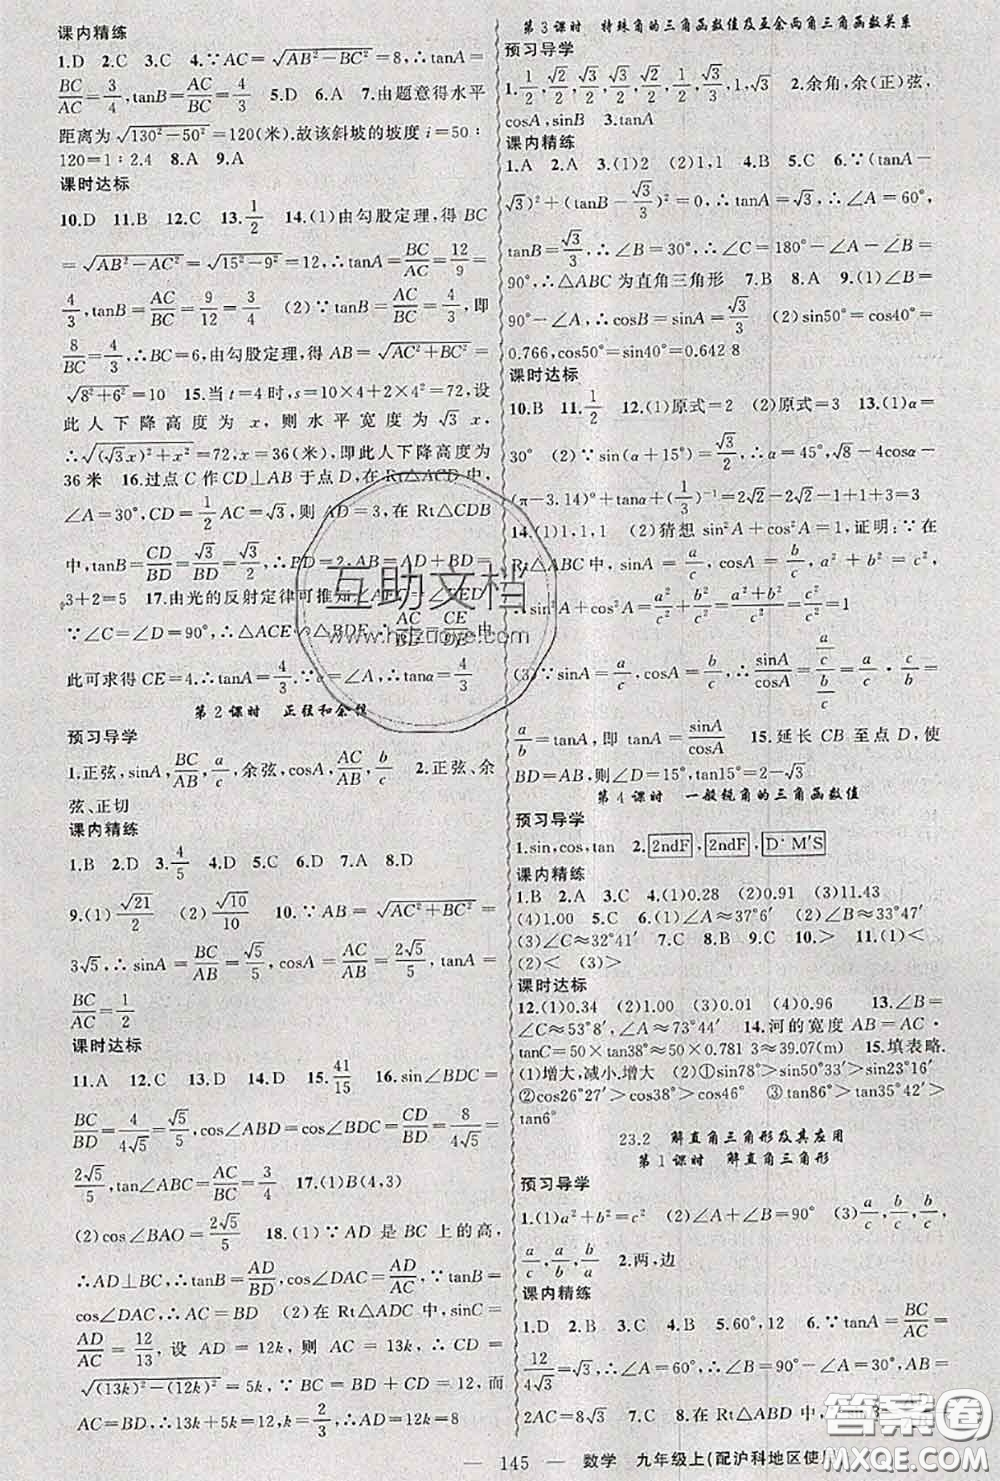 课内精练
1.D 2.C 3.C 4.∵AC=√(AB²-BC²)=8,∴tanA=
BC/AC=3/4,tanB=AC/BC=4/3 5.D 6.A 7.由题意得水平
距离为√(130²-50²)=120(米),故该斜坡的坡度i=50:
120=1:2.4 8.A 9.A
课时达标
10.D 11.B 12.C 13.1/2 14.(1)由勾股定理,得BC
=√(AB²-AC²)=√(15²-9²)=12,∴tanA=BC/AC=12/9=
4/3,tanB=AC/BC=9/12=3/4 (2)∵tanB=AC/BC=4/3,即
8/BC=4/3,∴BC=6,由勾股定理,得AB=√(AC²+BC²)=
√(8²+6²)=10 15.当t=4时,s=10×4+2×4²=72,设
此人下降高度为x,则水平宽度为√3x,
∴√((√3x)²+x²)=72,x=36(米),即此人下降高度为
36米 16.过点C作CD⊥AB于点D,在Rt△ACD中,
∠A=30°,CD=1/2AC=√3,则AD=3,在Rt△CDB
中,tanB=CD/BD=√3/BD=√3/2,∴BD=2,AB=AD+BD=
3+2=5 17.由光的反射定律可推知
∵∠C=∠D=90°,∴△ACE∽△BDE,∴AC/BD=CE/DE,由
此可求得CE=4,∴tanA=4/3,∵α=∠A,∴tanα=4/3
第2课时 正弦和余弦
预习导学
1.正弦,sinA,BC/AB,a/c,余弦,cosA,AC/AB,b/c 2.正弦、余
弦、正切
课内精练
1.B 2.D 3.4/5 4.D 5.D 6.D 7.A 8.D
9.(1)√21/2 (2)√10/10 10.∵AB=√(AC²+BC²)=
3√5,∴sinA=BC/AB=√5/5,cosA=AC/AB=2√5/5,tanA=
BC/AC=1/2
课时达标
11.A 12.C 13.D 14.D 15.41/15 16.sin∠BDC=
BC/BD=4/4√5=√5/5,cos∠ABD=cos∠BDC=CD/BD=8/4√5=
2√5/5,tan∠ABC=AC/BC=4/3 17.(1)B(4,3)
(2)cos∠BAO=2√5/5 18.(1)∵AD是BC上的高,
∴AD⊥BC,∴tanB=AD/BD,cos∠DAC=AD/AC,∵tanB=
cos∠DAC,∴AC=BD (2)在Rt△ADC中,sinC=
AD/AC=12/13,设AD=12k,则AC=13k,∴CD=
√((13k)²-(12k)²)=5k,∵BC=BD+CD=12,而
AC=BD,∴13k+5k=12,k=2/3,∴AD=12k=8
第3课时 特殊角的三角函数值及互余两角三角函数关系
预习导学
1.1/2,√2/2,√3/2,√3/2,√2/2,1/2,√3/3,1,√3 2.余角,余(正)弦,
cosA,sinB 3.tanA
课内精练
1.A 2.A 3.(1)2 (2)1 4.B 5.C 6.∵(tanA-
√3)²+(tanB-√3/3)²=0,∴tanA=√3,∴∠A=60°,
tanB=√3/3,∴∠B=30°,∴∠C=180°-∠A-∠B=
90°,∴△ABC为直角三角形 7.B 8.A 9.(1)∠B=
90°-∠A,∴cosB=sinA=√3/3 (2)sin50°=cos40°=
0.766,cos50°=sin40°=0.642 8
课时达标
10.B 11.1/2 12.(1)原式=2 (2)原式=3 13.(1)α=
30° (2)∵sin(α+15°)=√3/2,∴α=45°,√8-4cosα-
(π-3.14)°+tanα+(1/3)⁻¹=2√2-2√2-1+1+3=3
14.(1)1,1,1 (2)猜想sin²A+cos²A=1,证明:∵在
Rt△ABC中,sinA=a/c,cosA=b/c,a²+b²=c²,
∴sin²A+cos²A=a²/c²+b²/c²=(a²+b²)/c²=c²/c²=1
(3)∵sinA=a/c,cosA=b/c,∴sinA/cosA=(a/c)/(b/c)=a/c·c/b=
a/b=tanA,即tanA=sinA/cosA 15.延长CB至点D,使
BD=AB,则∠D=15°,tan15°=2-√3
第4课时 一般锐角的三角函数值
预习导学
1.sin,cos,tan 2.2ndF,2ndF,D·M'S
课内精练
1.B 2.A 3.C 4.(1)0.28 (2)0.91 (3)11.43
(4)1.00 5.C 6.(1)∠A≈37°6' (2)∠B≈33°47'
(3)∠C≈32°41' 7.C 8.B 9.C 10.> 11.(1)<
(2)< (3)>
课时达标
12.(1)0.34 (2)1.00 (3)0.51 (4)0.96 13.∠B=
∠C≈53°8',∠BAC≈73°44' 14.河的宽度AB=AC·
tanC=50×tan38°≈50×0.781 3≈39.07(m) 15.填表略.
(1)增大,减小,增大 (2)①sin78°>sin50°33'>sin24°
②cos26°27'>cos38°16'>cos46° ③tan75°>tan35°42'>
tan6°
23.2 解直角三角形及其应用
第1课时 解直角三角形
预习导学
1.(1)a²+b²=c² (2)∠A+∠B=90° (3)a/c,b/c,b/c,a/c,
a/b,a/b,b/a 2.两,边
课内精练
1.D 2.B 3.C 4.D 5.2 6.∵tanA=BC/AC=
12/4√3=√3,∴∠A=60°,∴∠B=30°,∴AB=
2AC=8√3 7.C 8.在Rt△ABD中,
— 145 — 数学 九年级上(配沪科地区使用)
互助文档
答案圈
MXQE.COM